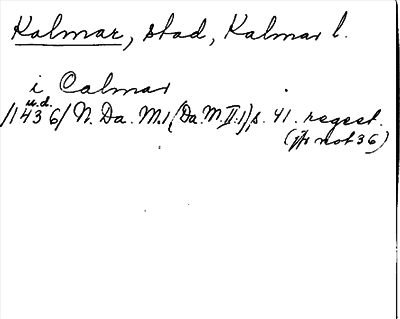 Kalmar, stad, Kalmar l.
i Calmar
u.d.
/1436/ N. Da. M. 1, (Da. M. II:1), s. 41. regest.
(jfr not 36)